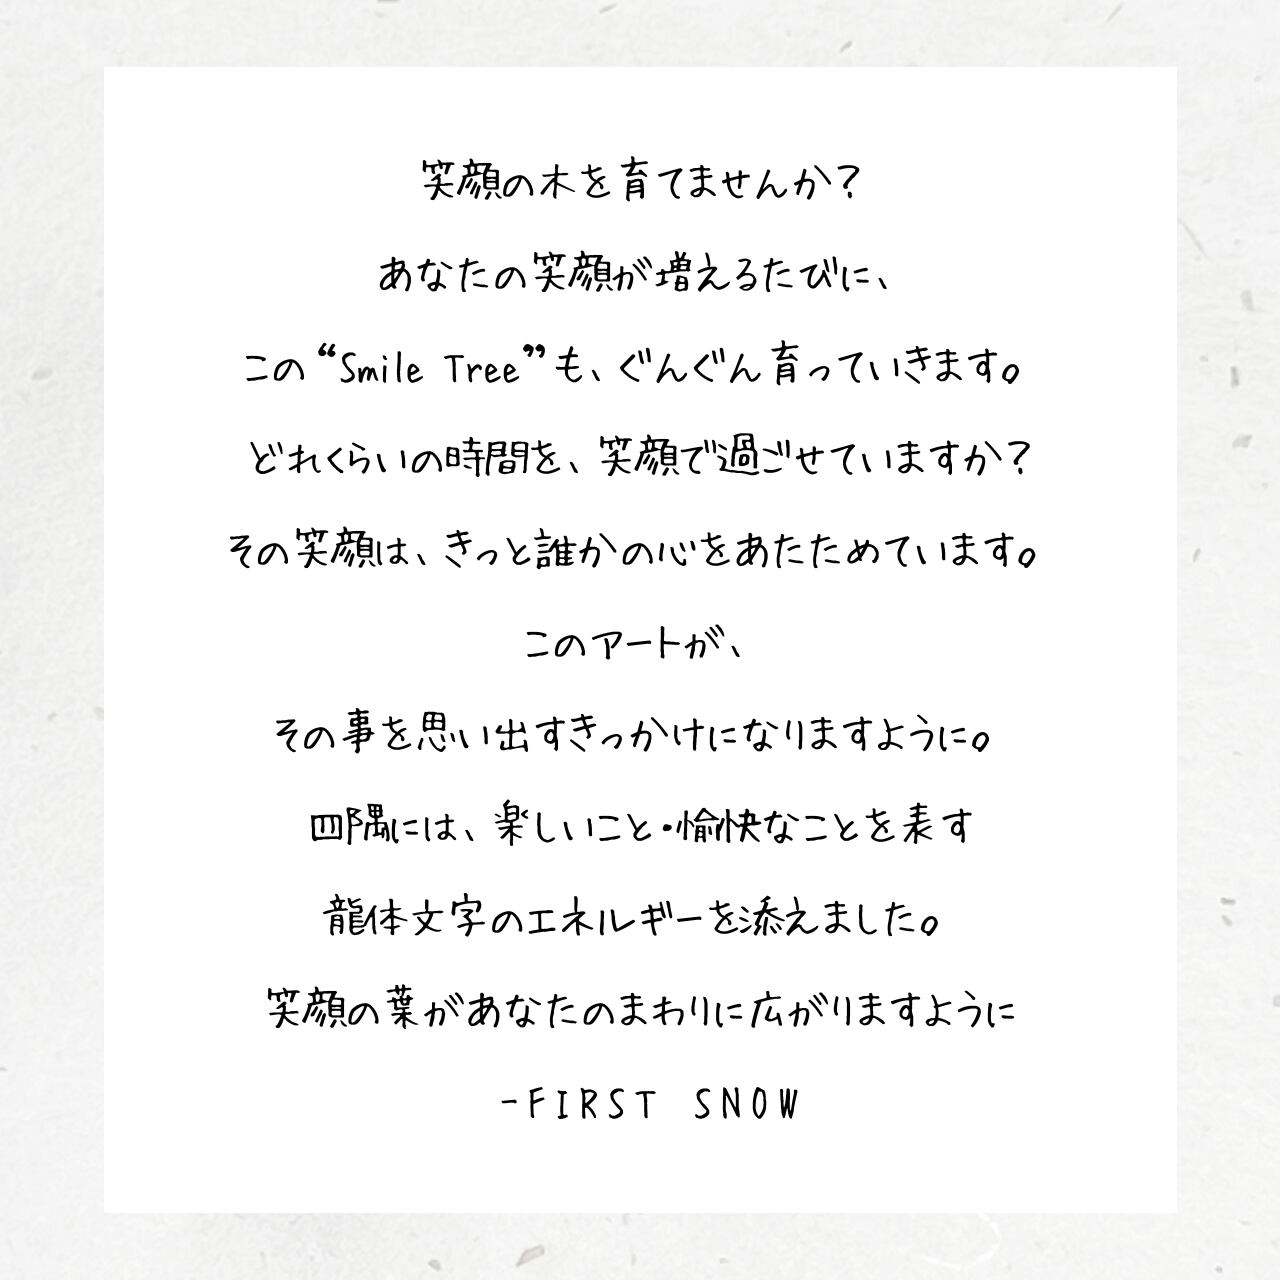 笑顔の木を育てませんか？
あなたの笑顔が増えるたびに、
この“Smile Tree”も、ぐんぐん育っていきます。
どれくらいの時間を、笑顔で過ごせていますか？
その笑顔は、きっと誰かの心をあたためています。
このアートが、
その事を思い出すきっかけになりますように。
四隅には、楽しいこと・愉快なことを表す
龍体文字のエネルギーを添えました。
笑顔の葉があなたのまわりに広がりますように
-FIRST SNOW